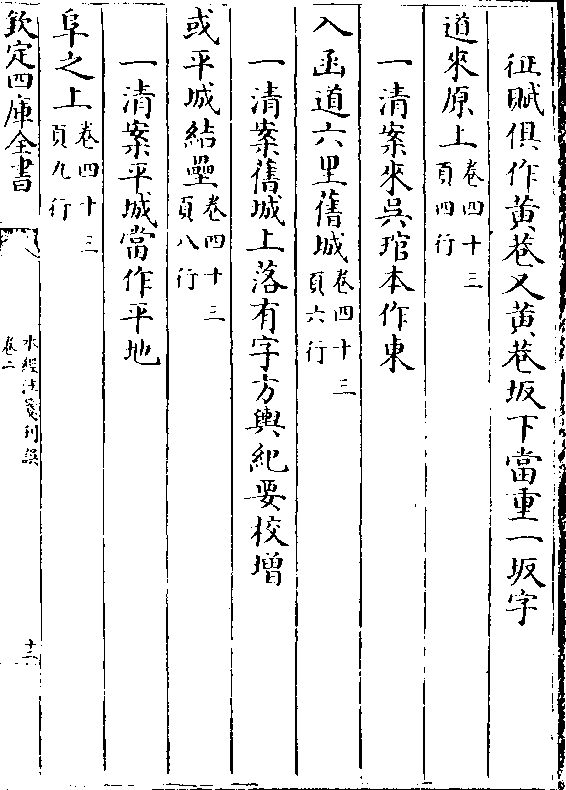 征賦俱作黄巷又黄巷坂下當重一坂字
道來原上卷四十三頁四行
一清案來吳琯本作東
入函道六里舊城卷四十三頁六行
一清案舊城上落有字方輿紀要校增
或平城結壘卷四十三頁八行
一清案平城當作平地
阜之上卷四十三頁九行
欽定四庫全書
水經注箋刋誤
卷二
十三